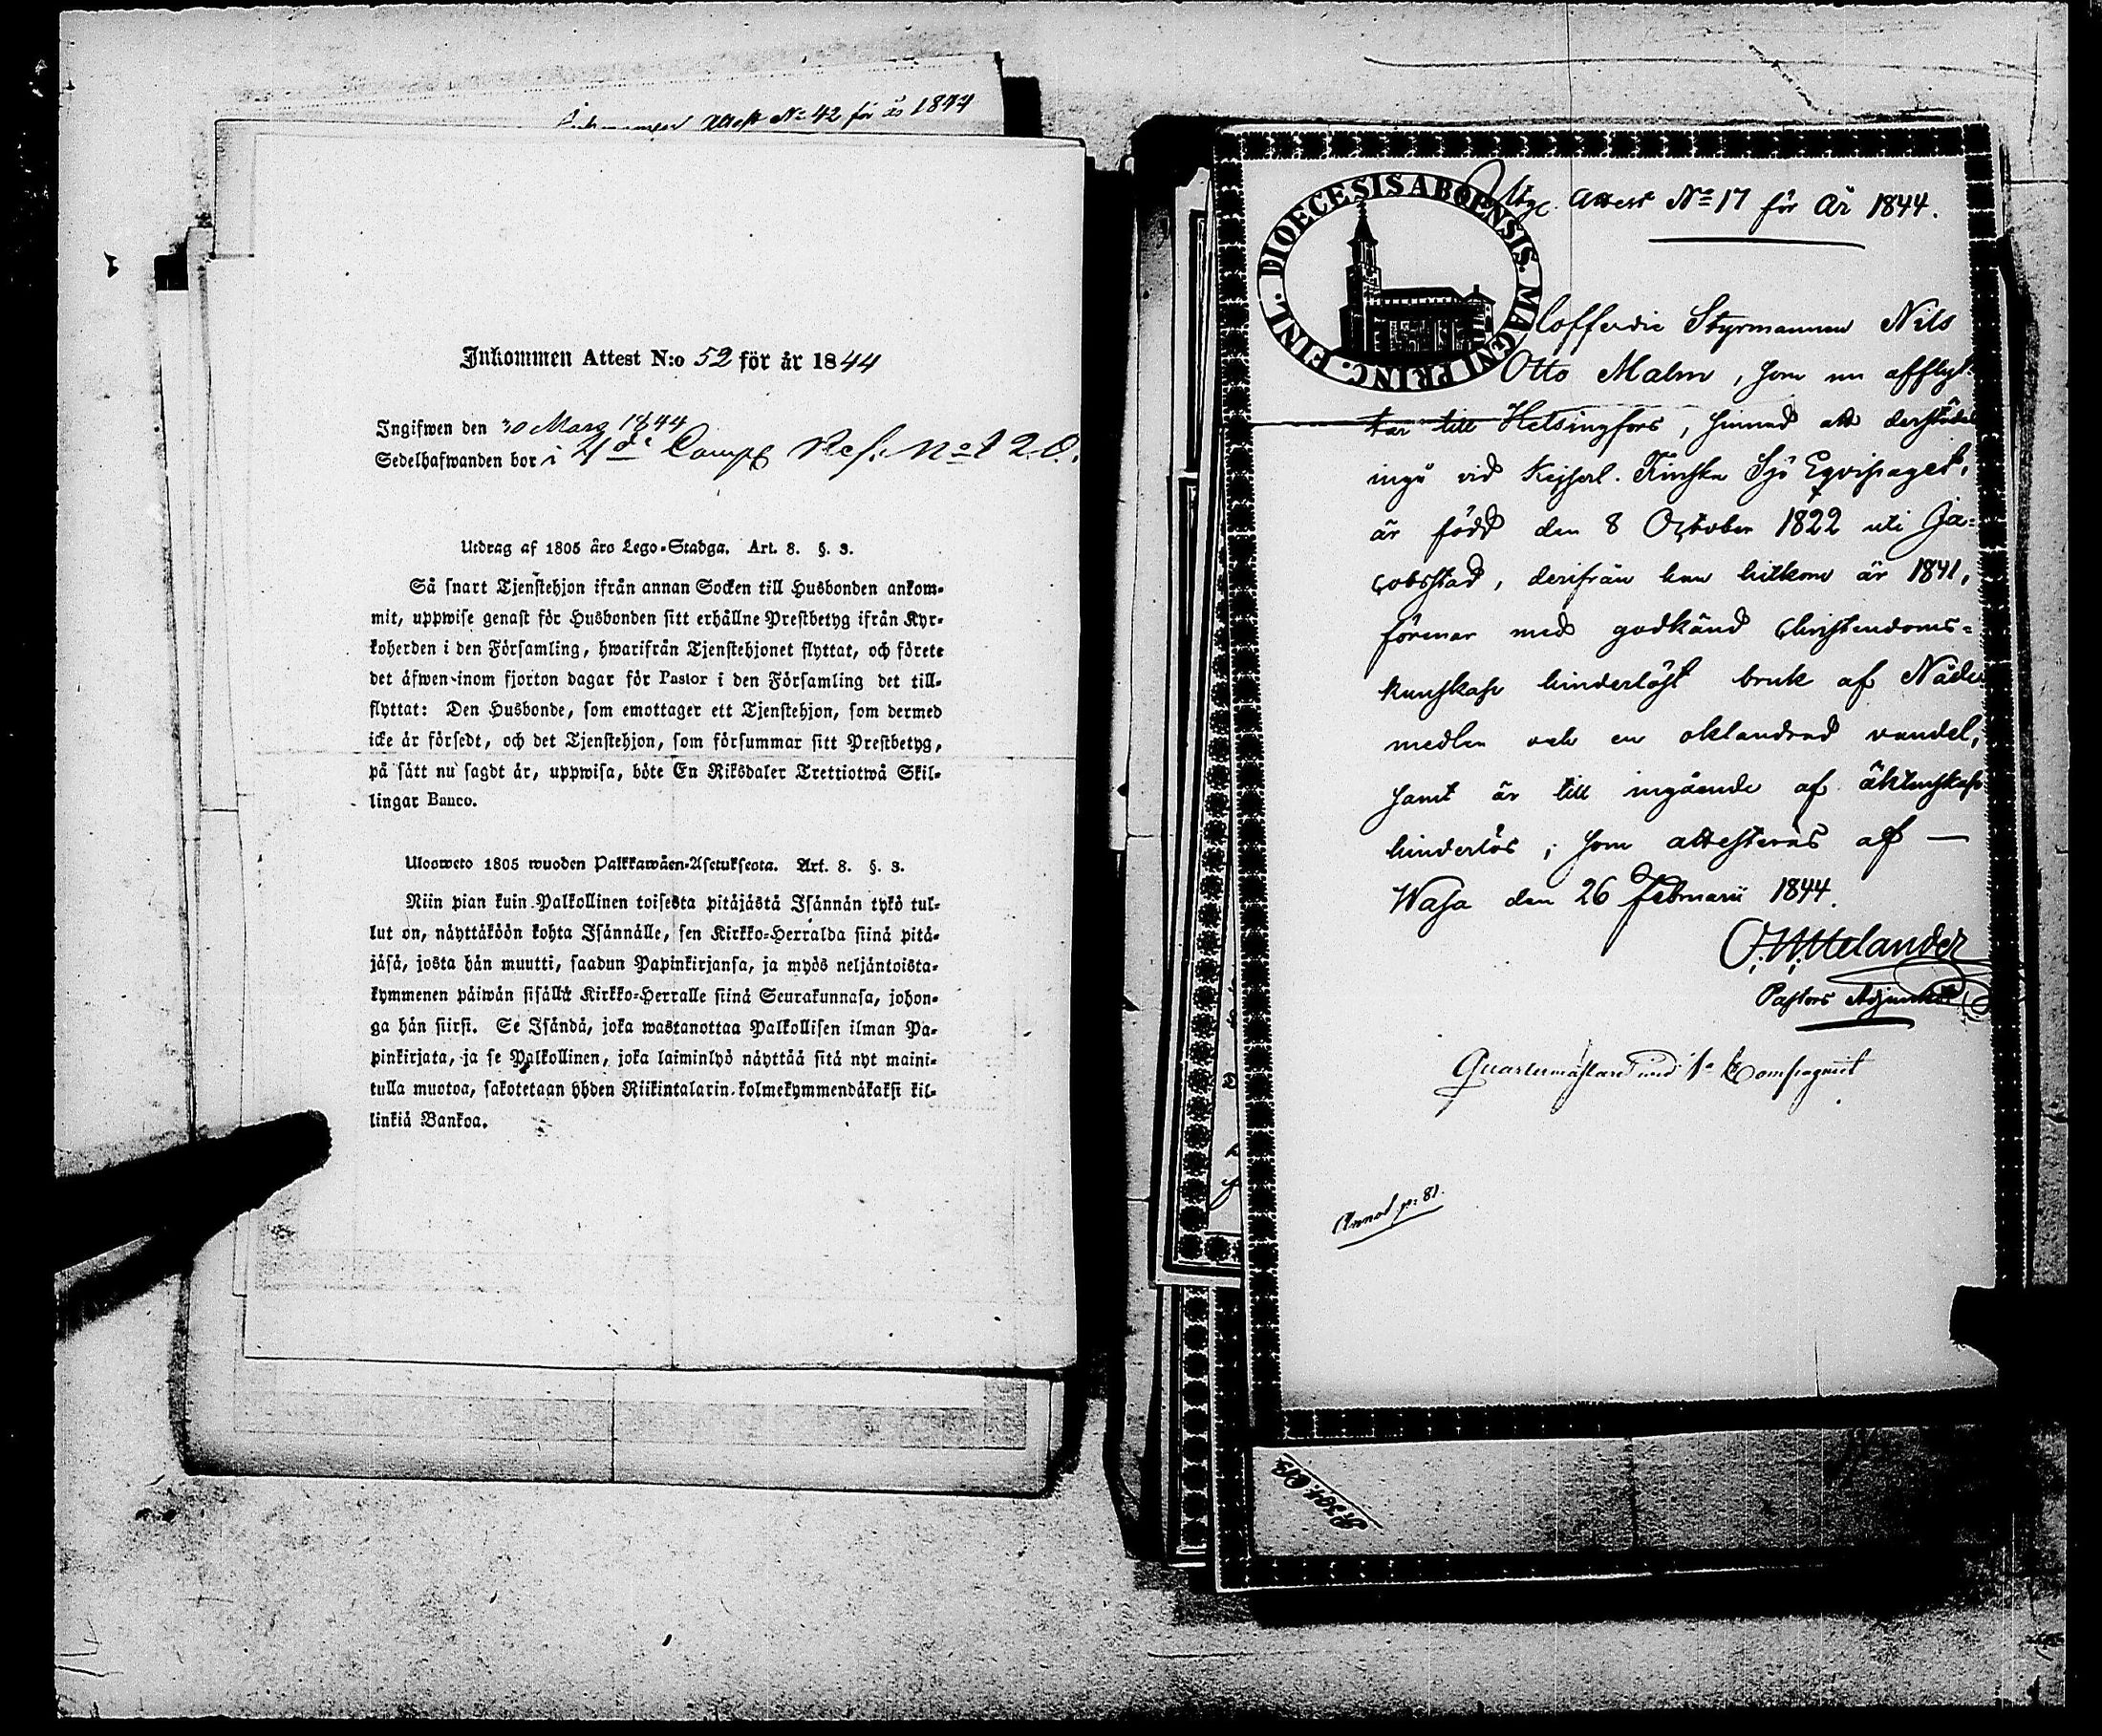 Attest No 42 för år 1844
Inkommen Attest N:o 52 för år 1844
Ingifwen den 30 Mars 1844
Sedelhafwanden bor i 4de Comp
Utdrag af 1805 års Lego-Stadga. Art. 8. §. 3.
Så snart Tjenstehjon ifrån annan Socken till Husbonden ankom-
mit, uppwise genast för Husbonden sitt erhållne Prestbetyg ifrån Kyr-
koherden i den Församling, hwarifrån Tjenstehjonet flyttat, och förete
det äfwen inom fjorton dagar för Pastor i den Församling det till-
flyttat: Den Husbonde, som emottager ett Tjenstehjon, som dermed
icke är försedt, och det Tjenstehjon, som försummar sitt Prestbetyg,
på sätt nu sagdt är, uppwisa, böte En Riksdaler Trettiotwå Skil-
lingar Banco.
Ulosweto 1805 wuoden Palkkawäen-Asetuksesta. Art. 8. §. 3.
Niin pian kuin Palkollinen toisesta pitäjästä Isännän tykö tul-
lut on, näyttäköön kohta Isännälle, sen Kirkko-Herralda siinä pitä-
jäsä, josta hän muutti, saadun Papinkirjansa, ja myös neljäntoista-
kymmenen päiwän sisällä Kirkko-Herralle siinä Seurakunnasa, johon-
ga hän siirsi. Se Isändä, joka wastanottaa Palkollisen ilman Pa-
pinkirjata, ja se Palkollinen, joka laiminlyö näyttää sitä nyt maini-
tulla muotoa, sakotetaan yhden Riikintalarin kolmekymmendäkaksi kil-
linkiä Bankoa.
DIOECESIS ABOENSIS. MAGNI PRINC. FINL.
Utg. Attest No 17 för År 1844.
Cofferdie Styrmannen Nils
Otto Malm, som nu afflyt-
tar till Helsingfors, sinnad att derstädes
ingå vid Kejserl. Finska Sjö Eqvipaget,
är född den 8 October 1822 uti Ja-
cobsstad, derifrån han hitkom år 1841,
förenar med godkänd christendoms-
kunskap hinderlöst bruk af Nåde
medlen och en oklandrad vandel,
samt är till ingående af äktenskap
hinderlös; som attesteras af —
Wasa den 26 Februarii 1844.
Melander
Pastors Adjunkt
Annot. p: 81.